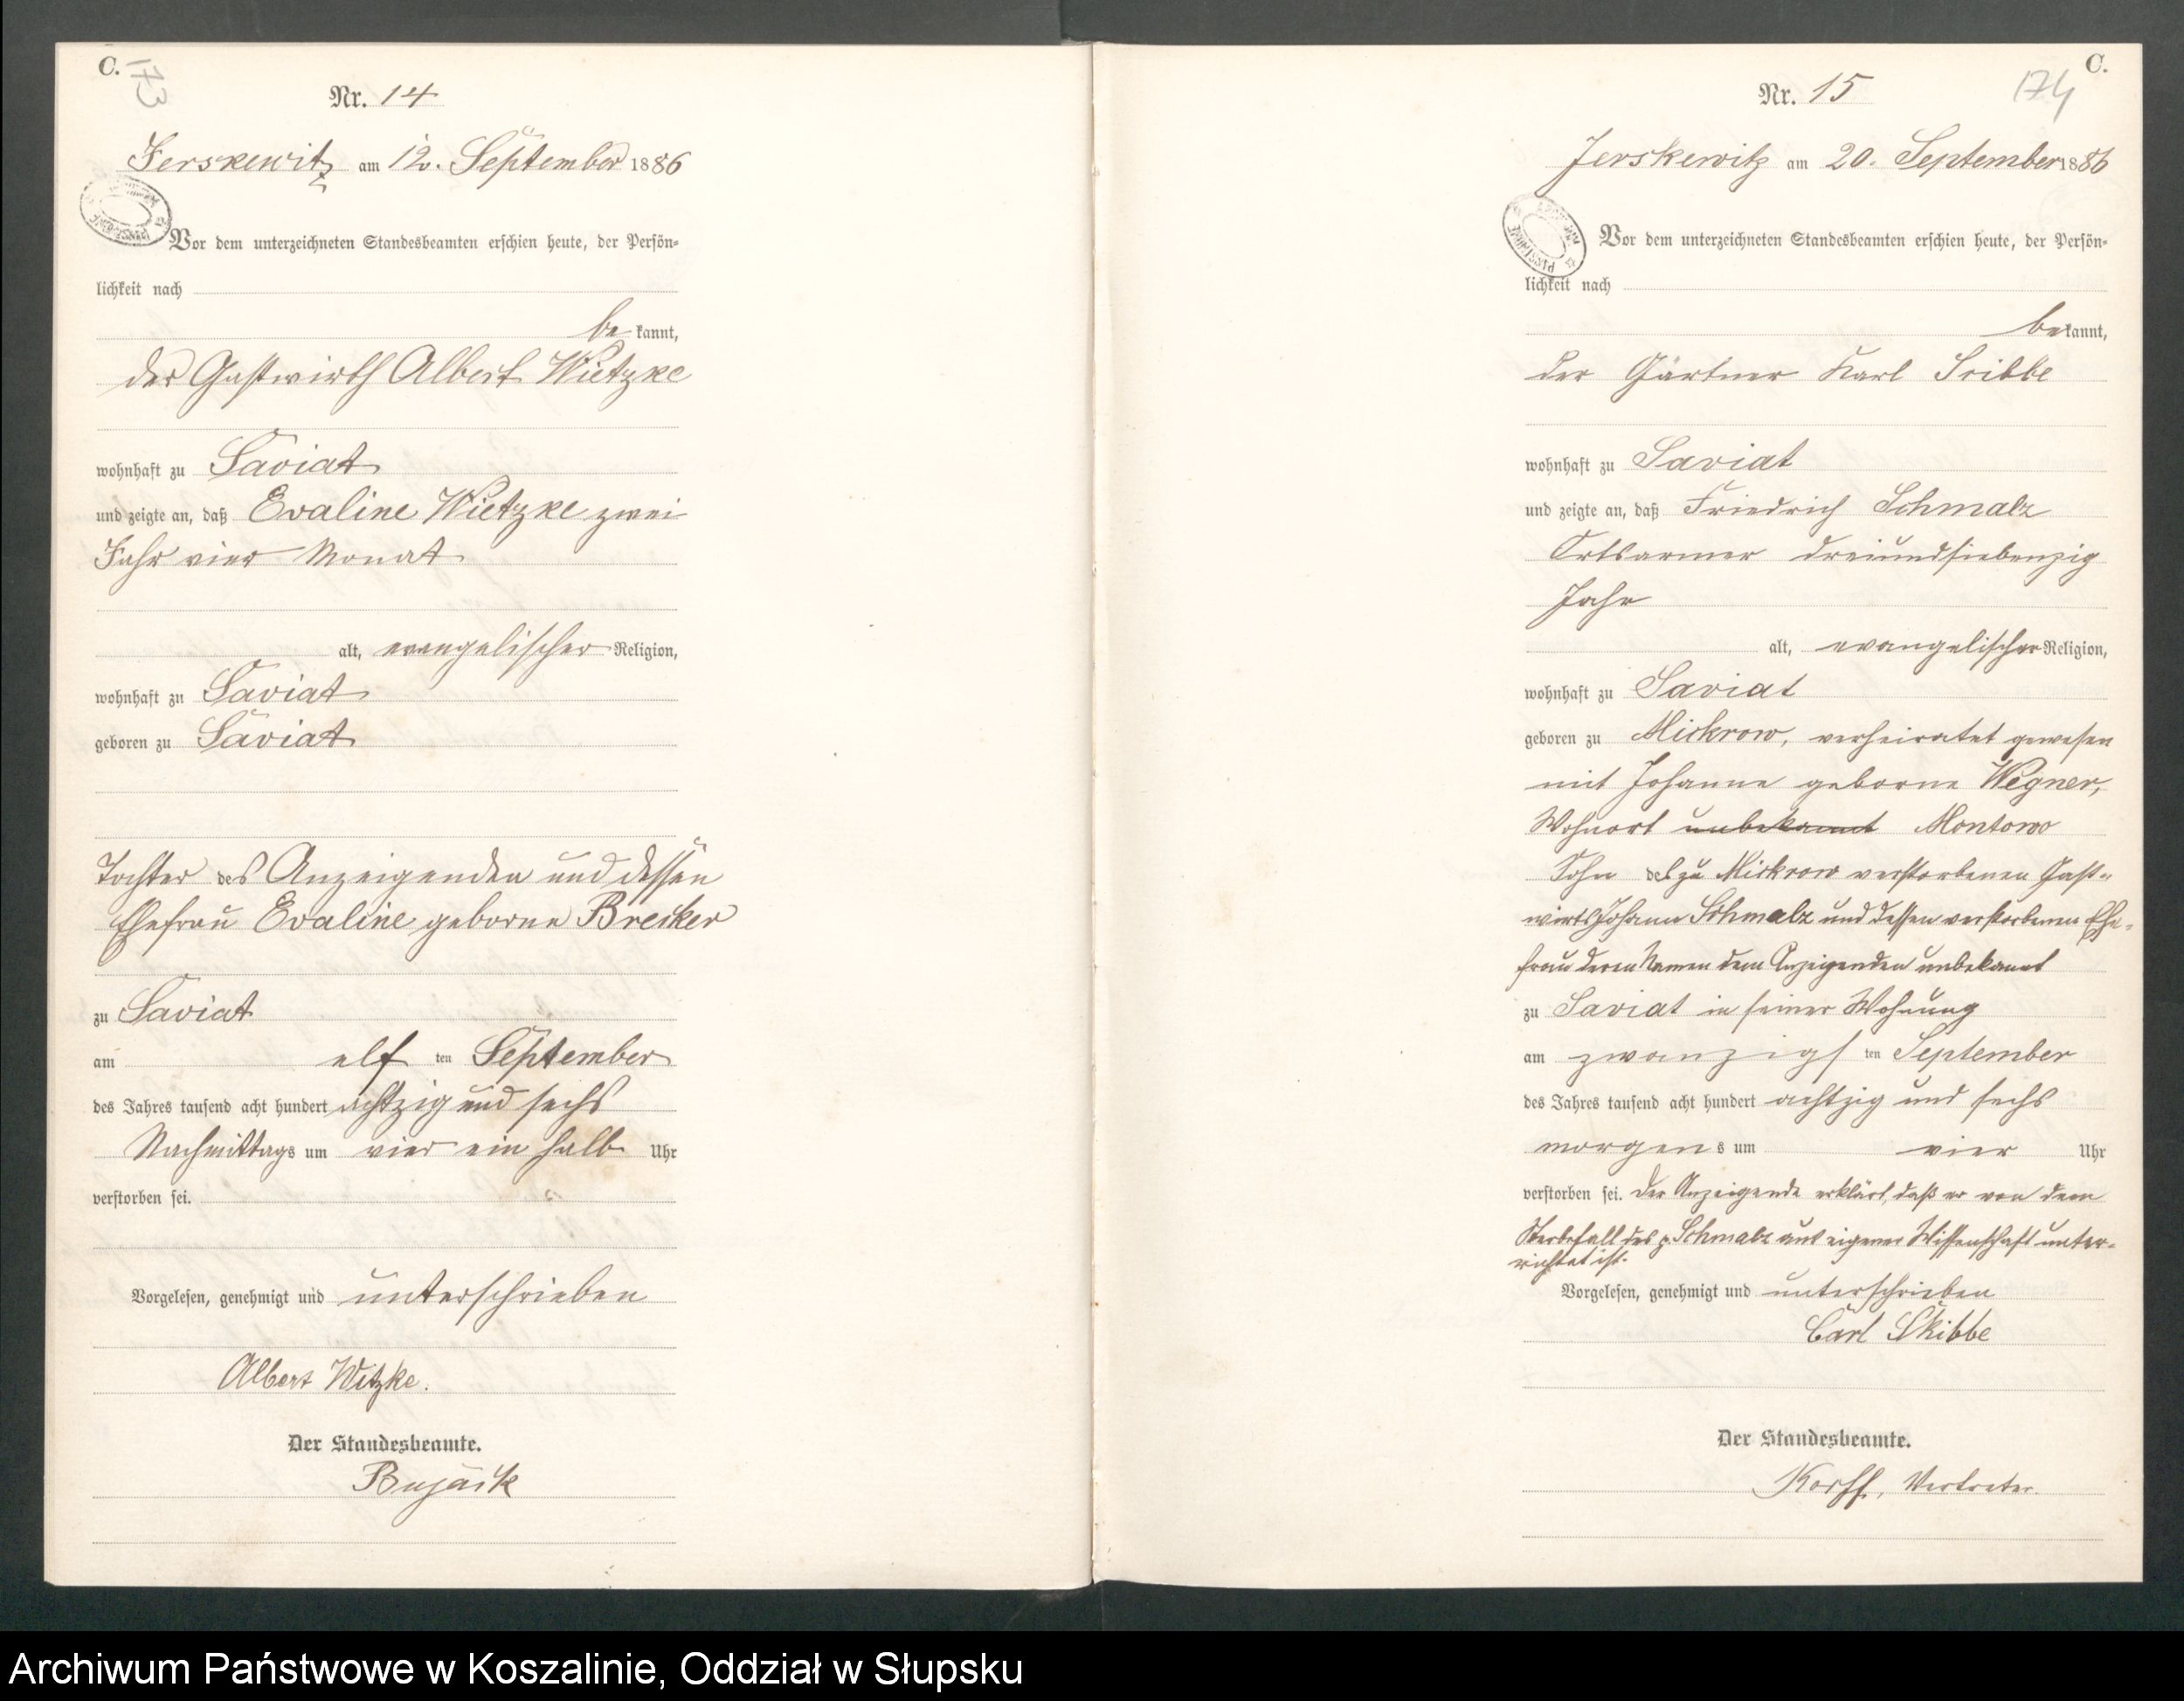 C.
173
Nr. 14
Jerskewitz am 12. September 1886
Vor dem unterzeichneten Standesbeamten erschien heute, der Persön-
lichkeit nach
be kannt,
der Gastwirth Albert Wietzke
wohnhaft zu Saviat
und zeigte an, daß Evaline Wietzke zwei
Jahr vier Monat
alt, evangelischer Religion,
wohnhaft zu Saviat
geboren zu Saviat
Tochter des Anzeigenden und dessen
Ehefrau Evaline geborne Brecker
zu Saviat
am elf ten September
des Jahres tausend acht hundert achtzig und sechs
Nachmittags um vier ein halb Uhr
verstorben sei.
Vorgelesen, genehmigt und unterschrieben
Albert Witzke.
Der Standesbeamte.
C.
174
Nr. 15
Jerskewitz am 20. September 1886
Vor dem unterzeichneten Standesbeamten erschien heute, der Persön-
lichkeit nach
bekannt,
der Gärtner Karl Scibbe
wohnhaft zu Saviat
und zeigte an, daß Friedrich Schmalz
Ortsarmer dreiundsiebenzig
Jahr
alt, evangelischer Religion,
wohnhaft zu Saviat
geboren zu Mickrow, verheiratet gewesen
mit Johanne geborne Wegner,
Wohnort unbekannt Montowo
Sohn des zu Mickrow verstorbenen Gast-
wirts Johann Schmalz und dessen verstorbenen Ehe-
frau deren Namen dem Anzeigenden unbekannt
zu Saviat in seiner Wohnung
am zwanzigs ten September
des Jahres tausend acht hundert achtzig und sechs
morgens um vier Uhr
verstorben sei. Der Anzeigende erklärt, daß er von dem
Sterbefall des p. Schmalz aus eigener Wissenschaft unter-
richtet ist.
Vorgelesen, genehmigt und unterschrieben
Carl Skibbe
Der Standesbeamte.
Korff, Vertreter.
Archiwum Państwowe w Koszalinie, Oddział w Słupsku